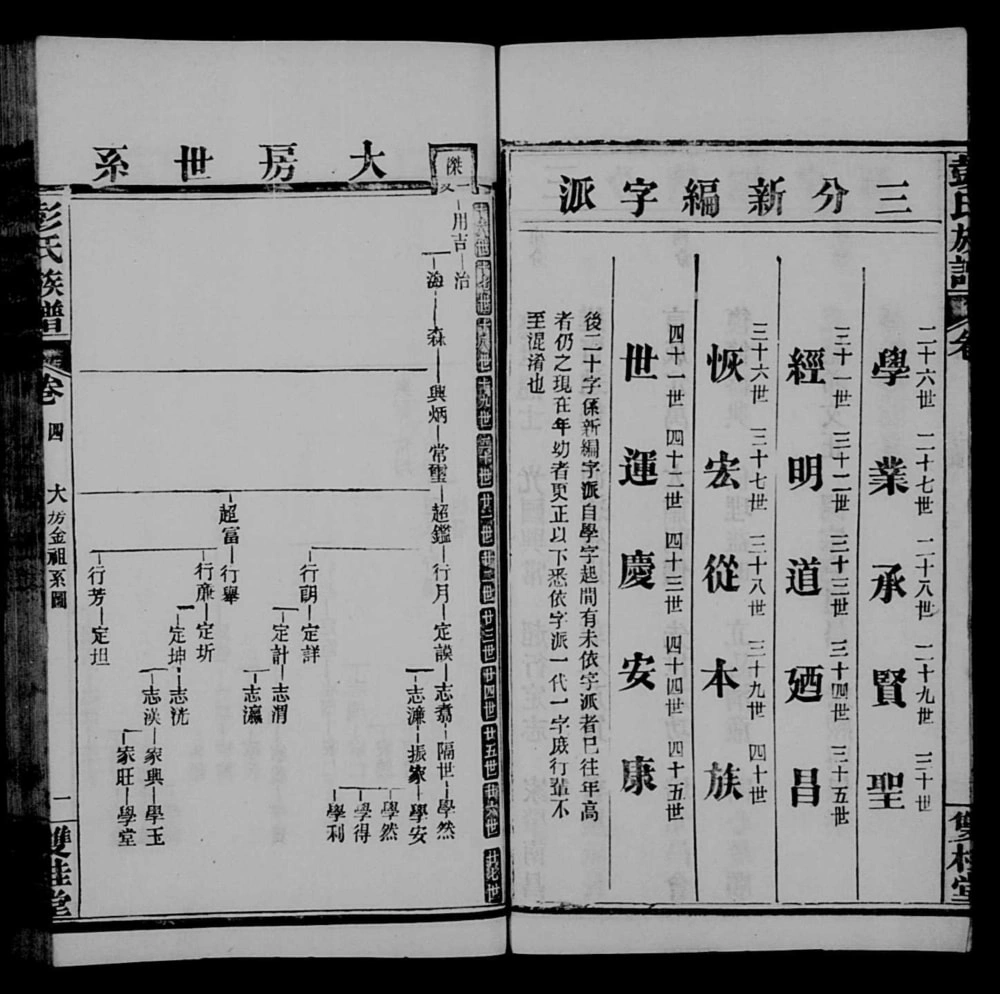 彭氏族譜
卷
雙桂堂
三分新編字派
二十六世 二十七世 二十八世 二十九世 三十世
學業承賢聖
三十一世 三十二世 三十三世 三十四世 三十五世
經明道廼昌
三十六世 三十七世 三十八世 三十九世 四十世
恢宏從本族
四十一世 四十二世 四十三世 四十四世 四十五世
世運慶安康
後二十字係新編字派自學字起間有未依字派者已往年高
者仍之現在年幼者更正以下悉依字派一代一字庶行輩不
至混淆也
大房世系
傑
十六世 十七世 十八世 十九世 二十世 廿一世 廿二世 廿三世 廿四世 廿五世 廿六世 廿七世
用吉 治
海 森 興炳 常璽 超鑑 行月 定謨 志翥 隔世 學然
志濂 振家 學安
學然
學得
學利
行朗 定詳
定計 志渭
志瀛
超富 行舉
行廉 定圻
定坤 志洸
志漢 家興 學玉
家旺 學堂
行芳 定坦
彭氏族譜
卷四
大房金祖系圖
一
雙桂堂